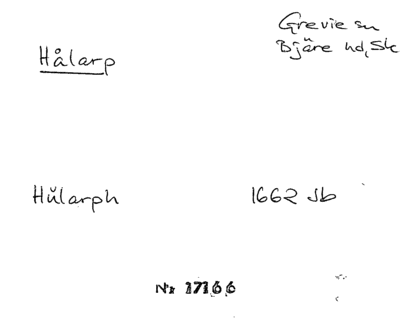 Hålarp
Grevie sn
Bjäre hd, Sk
Hŭlarph 1662 Jb
Nr 17166